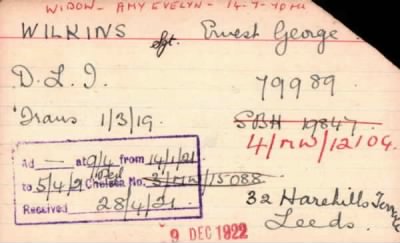 WIDOW - AMY EVELYN - 14-7-90
WILKINS Sgt. Ernest George
D.L.I. 79989
Trans 1/3/19. SBH 19847
4/MW/12104
Ad — at 9/4 from 14/1/21
to 5/4/21 Chelsea No. 3/MW/15088
Received 28/4/21
32 Harehills Terrace
Leeds.
9 DEC 1922